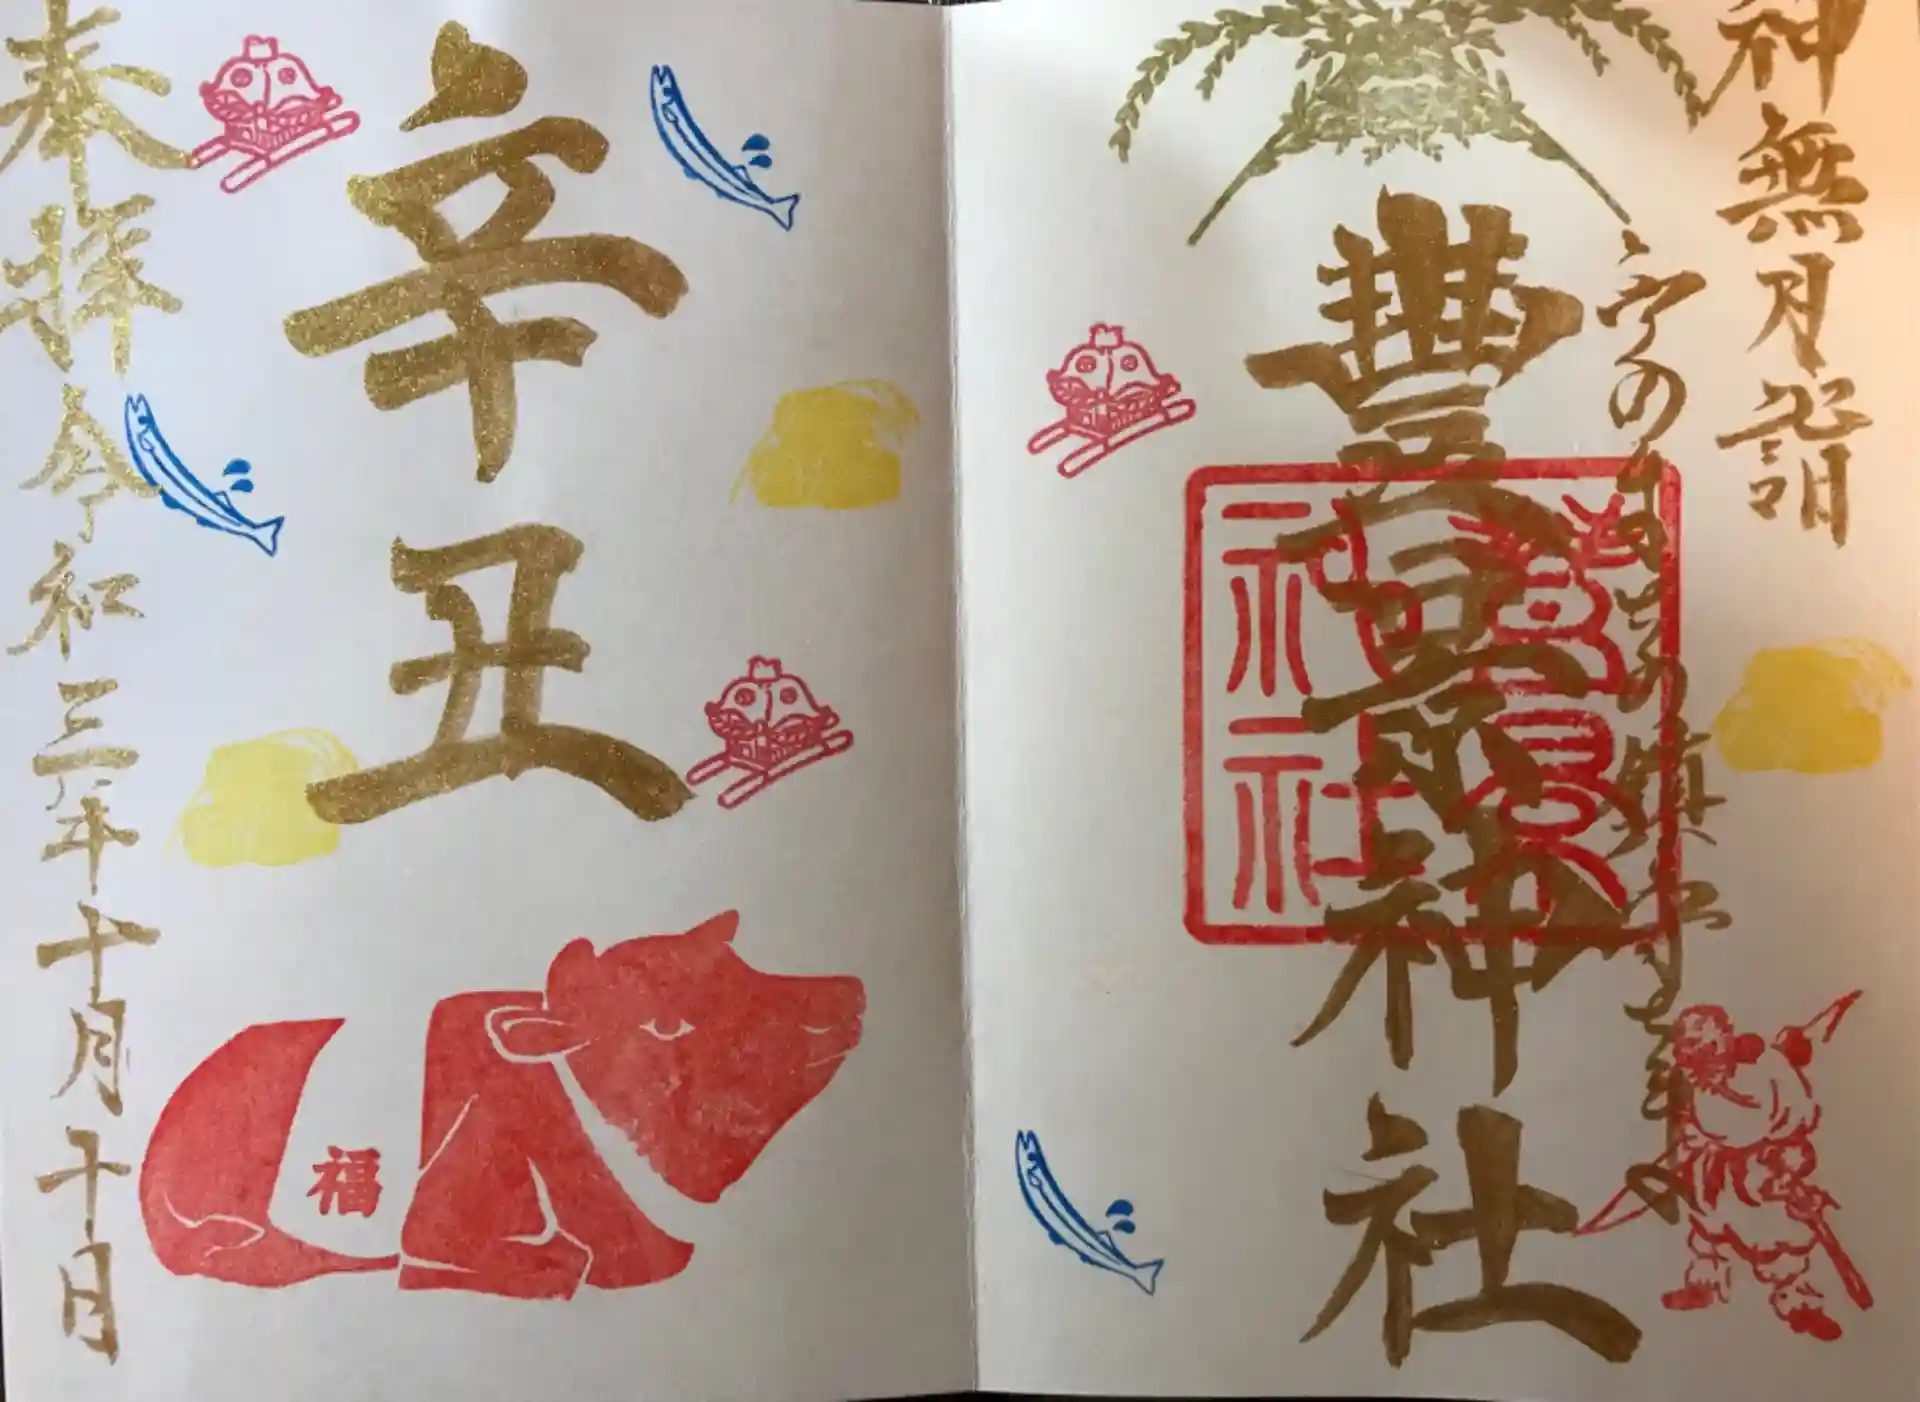 神無月詣
豐景神社
豊景神社
辛丑
福
奉拝 令和三年十月十日